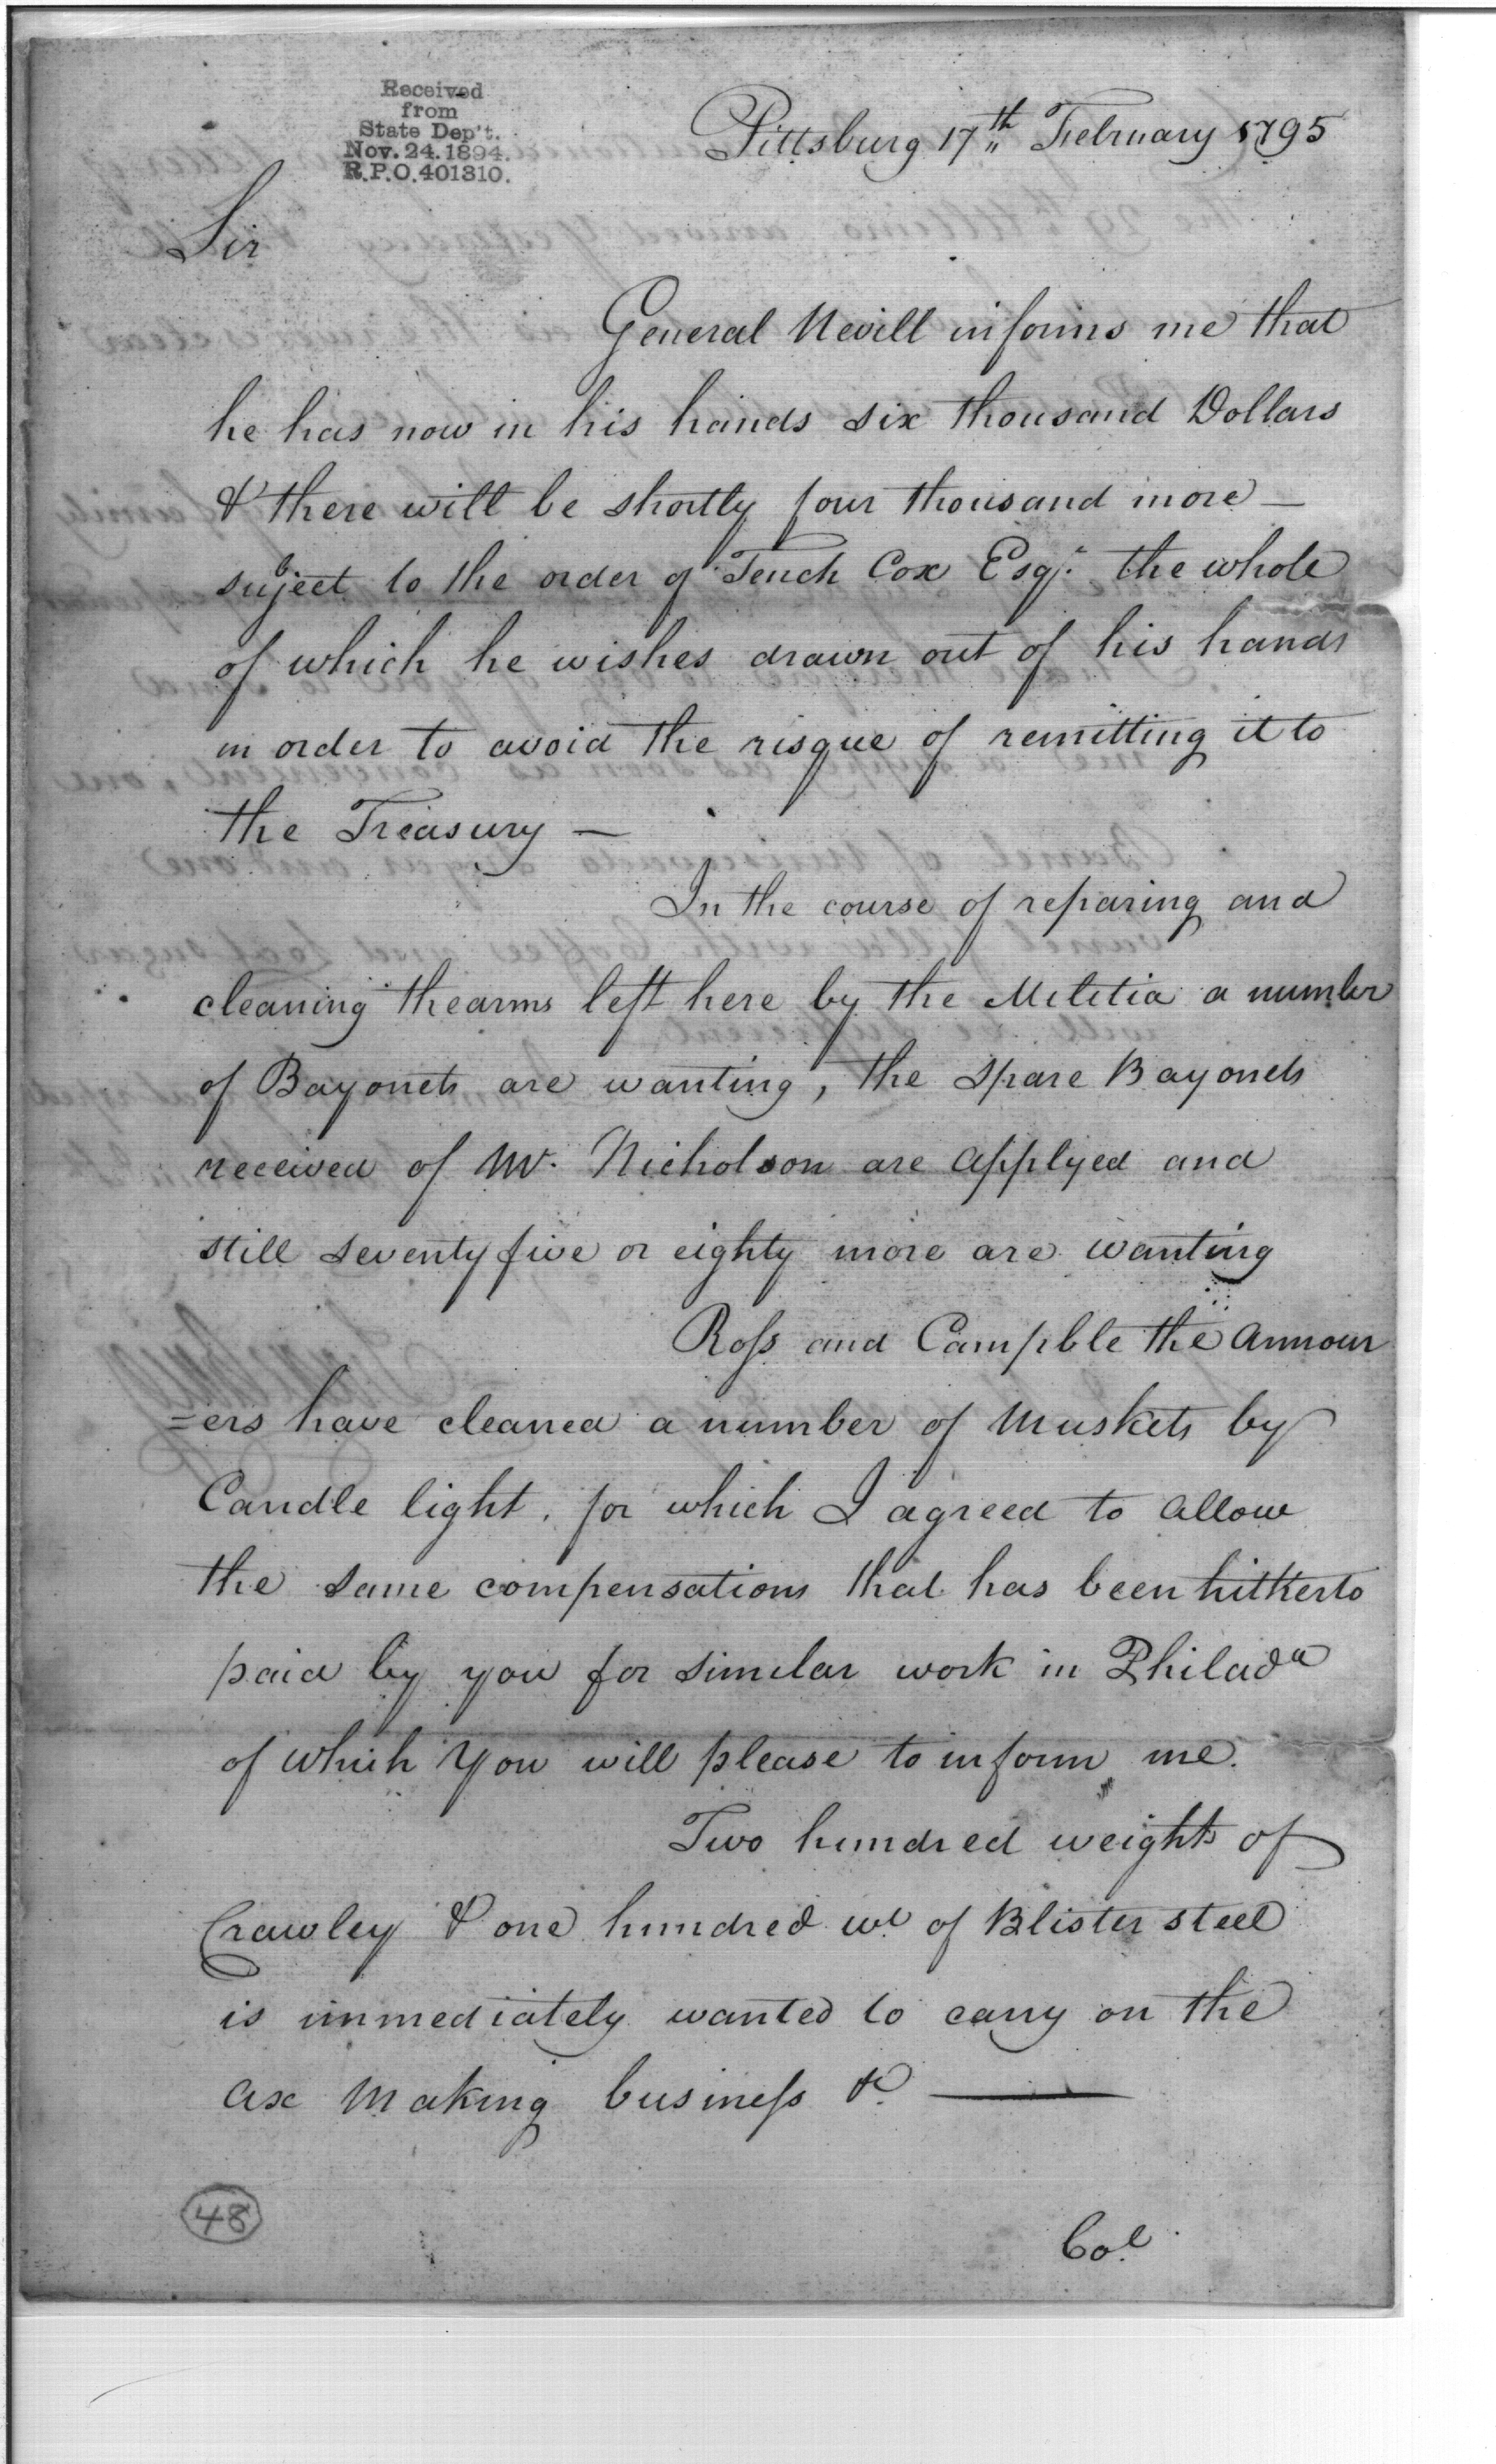 Received
from
State Dep't.
Nov. 24. 1894.
R.P.O. 401310.
Pittsburg 17th February 1795
Sir
General Nevill informs me that
he has now in his hands six thousand Dollars
& there will be shortly four thousand more —
subject to the order of Tench Cox Esqr. the whole
of which he wishes drawn out of his hands
in order to avoid the risque of remitting it to
the Treasury —
In the course of reparing and
cleaning the arms left here by the Melitia a number
of Bayonets are wanting, the spare Bayonets
received of Mr. Nicholson are applyed and
still seventy five or eighty more are wanting
Ross and Campble the Armour
=ers have cleaned a number of Muskets by
Candle light, for which I agreed to allow
the same compensations that has been hitherto
paid by you for similar work in Philada
of which you will please to inform me.
Two hundred weights of
Crawley & one hundred wt. of Blister steel
is immediately wanted to carry on the
ax making business &c. —
48
Col.